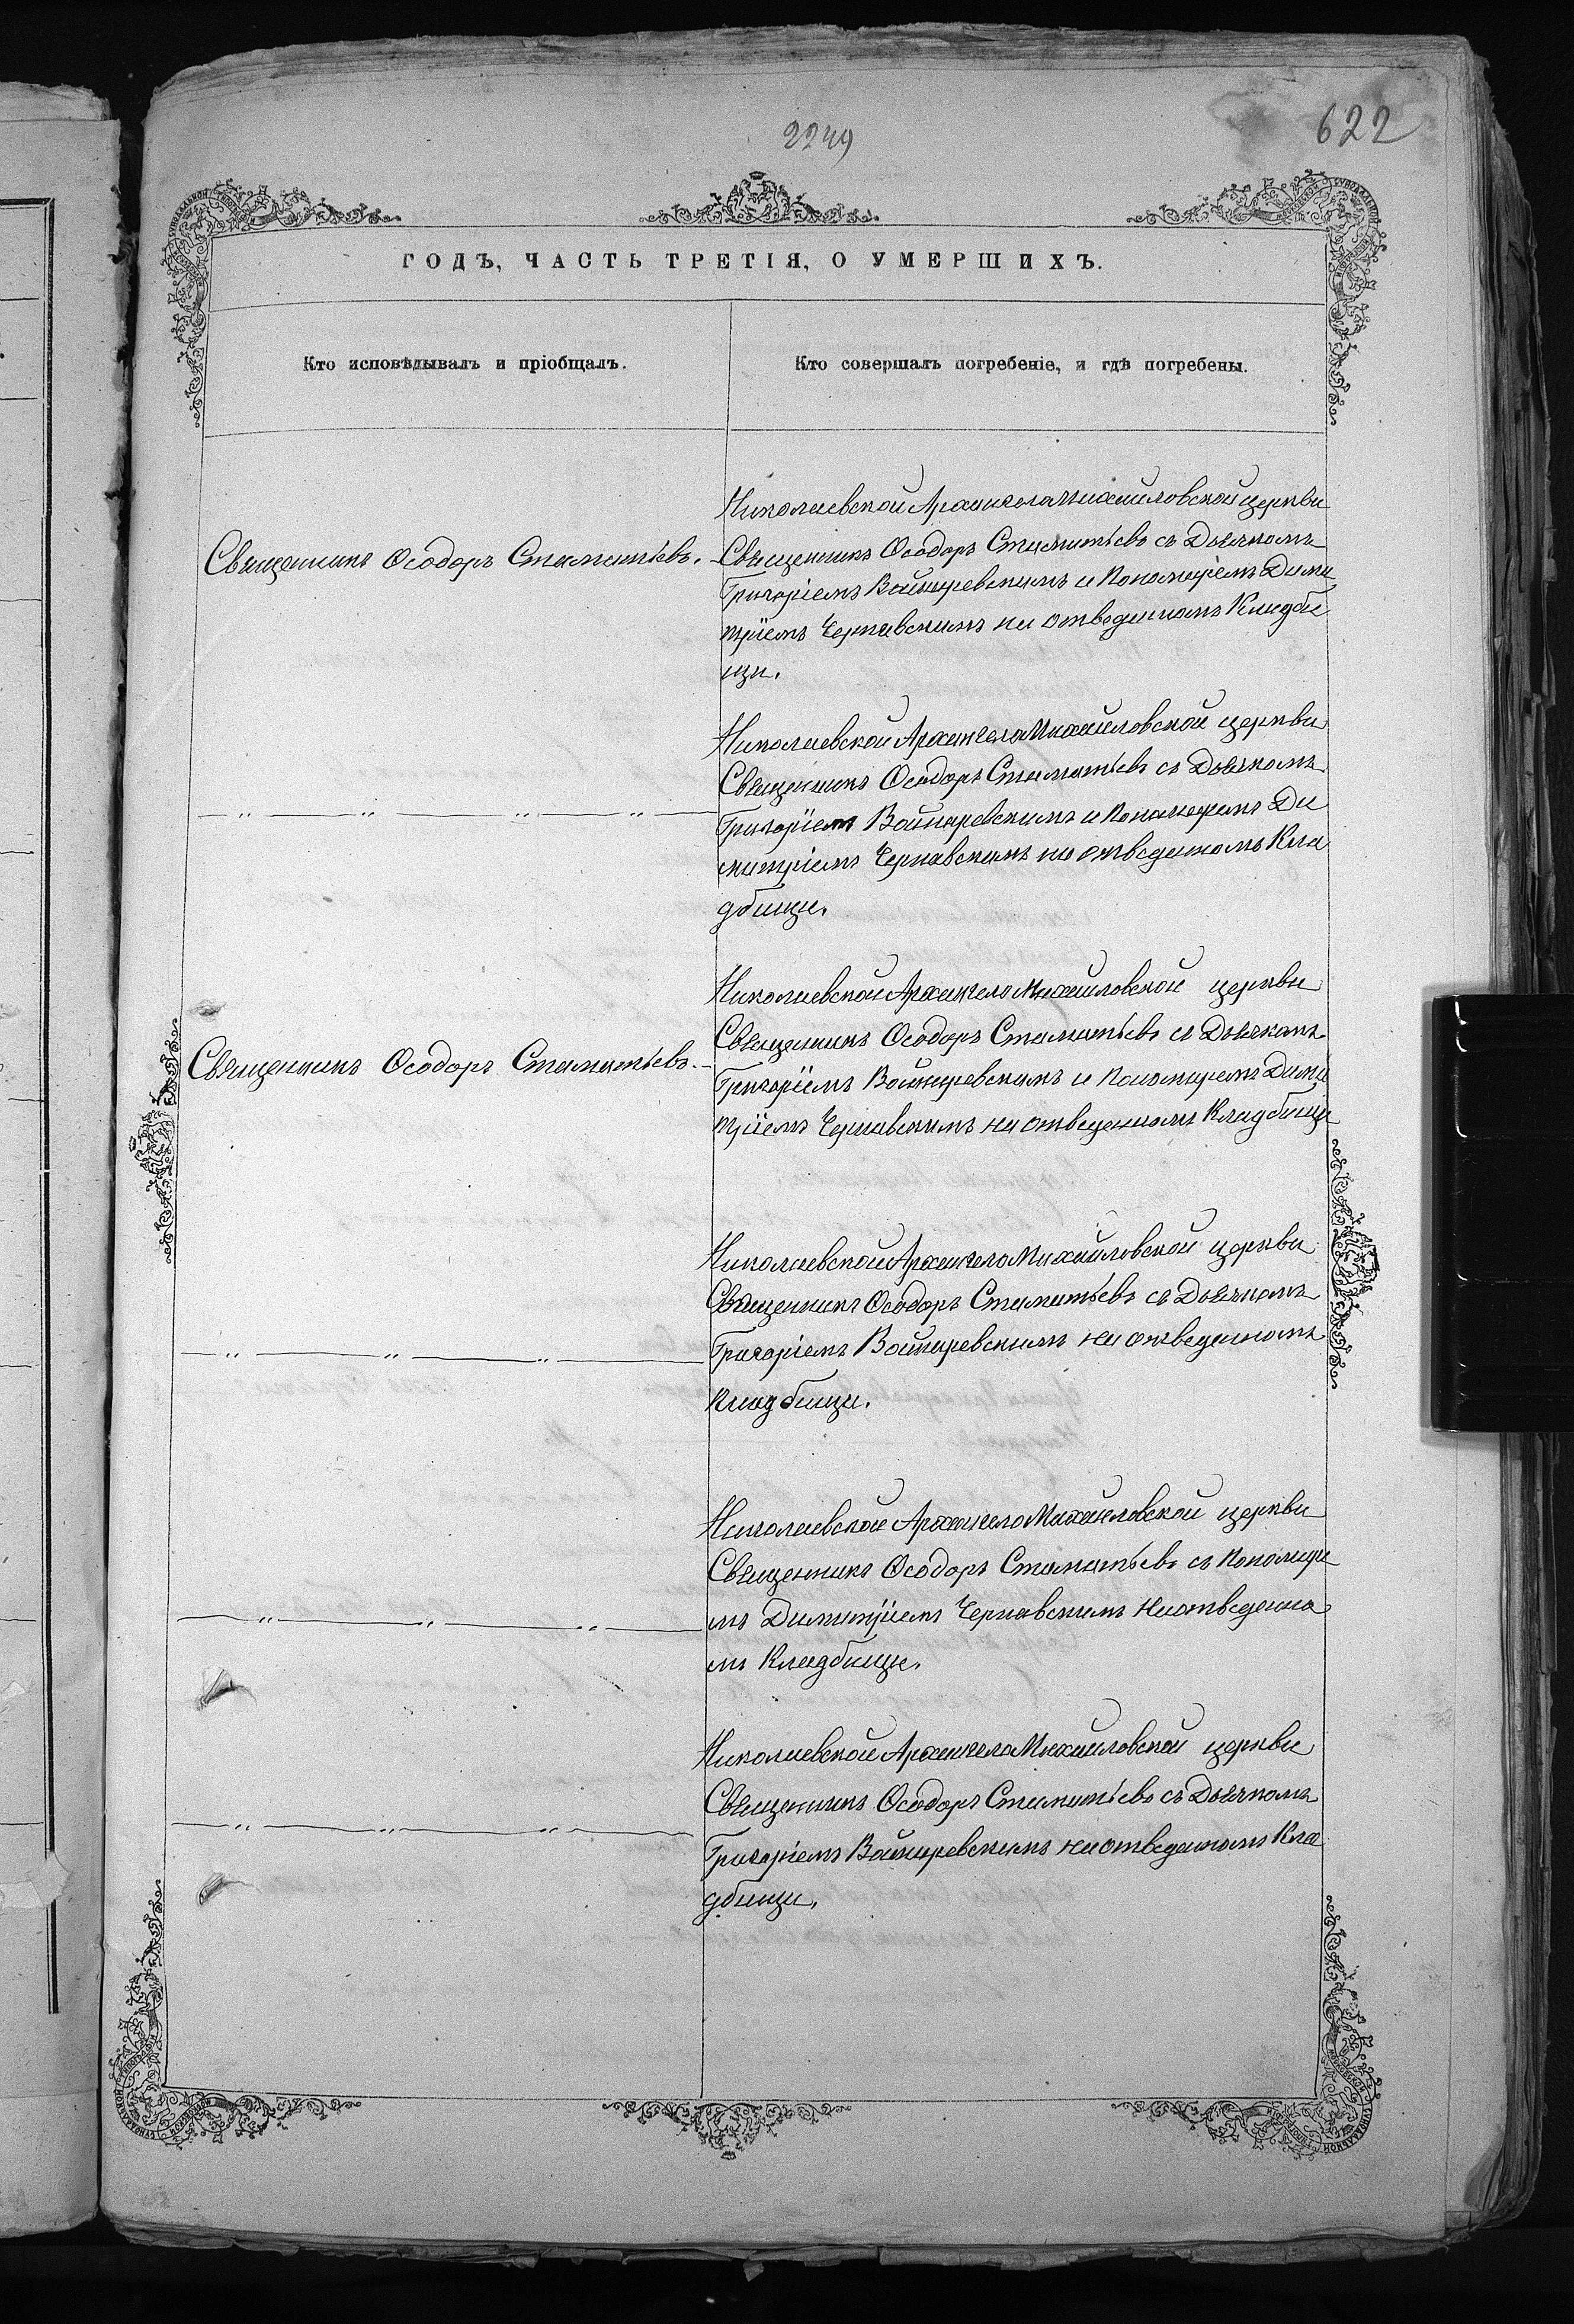 2249
622
ГОДЪ, ЧАСТЬ ТРЕТІЯ, О УМЕРШИХЪ.
Кто исповѣдывалъ и пріобщалъ.
Кто совершалъ погребеніе, и гдѣ погребены.
Священникъ Ѳеодоръ Стаматьевъ.
Николаевской Архангеломихайловской церкви
Священникъ Ѳеодоръ Стаматьевъ съ Дьячкомъ
Григоріемъ Войнаревскимъ и Пономаремъ Дими
тріемъ Чернявскимъ на отведенномъ Кладби
щи.
— „ — „ — „ — „ —
Николаевской АрхангелоМихайловской церкви
Священникъ Ѳеодоръ Стаматьевъ съ Дьячкомъ
Григоріемъ Войнаревскимъ и Пономаремъ Ди
митріемъ Чернявскимъ на отведенномъ Кла
дбищи.
Священникъ Ѳеодоръ Стаматьевъ.
Николаевской АрхангелоМихайловской церкви
Священникъ Ѳеодоръ Стаматьевъ съ Дьячкомъ
Григоріемъ Войнаревскимъ и Пономаремъ Дими
тріемъ Чернявскимъ на отведенномъ Кладбищи
— „ — „ — „ —
Николаевской АрхангелоМихайловской церкви
Священникъ Ѳеодоръ Стаматьевъ съ Дьячкомъ
Григоріемъ Войнаревскимъ на отведенномъ
Кладбищи.
— „ — „ — „ —
Николаевской АрхангелоМихайловской церкви
Священникъ Ѳеодоръ Стаматьевъ съ Пономаре
мъ Димитріемъ Чернявскимъ на отведенно
мъ Кладбищи.
— „ — „ — „ —
Николаевской АрхангелоМихайловской церкви
Священникъ Ѳеодоръ Стаматьевъ съ Дьячкомъ
Григоріемъ Войнаревскимъ на отведенномъ Кла
дбищи.